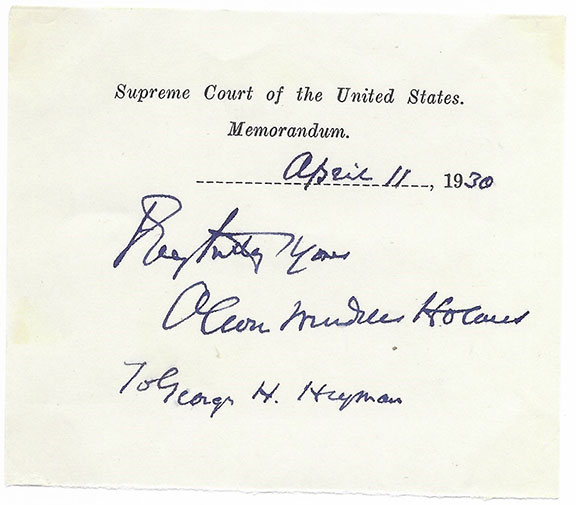 Supreme Court of the United States.
Memorandum.
April 11, 1930
Very truly Yours
Oliver Wendell Holmes
To George H. Heyman